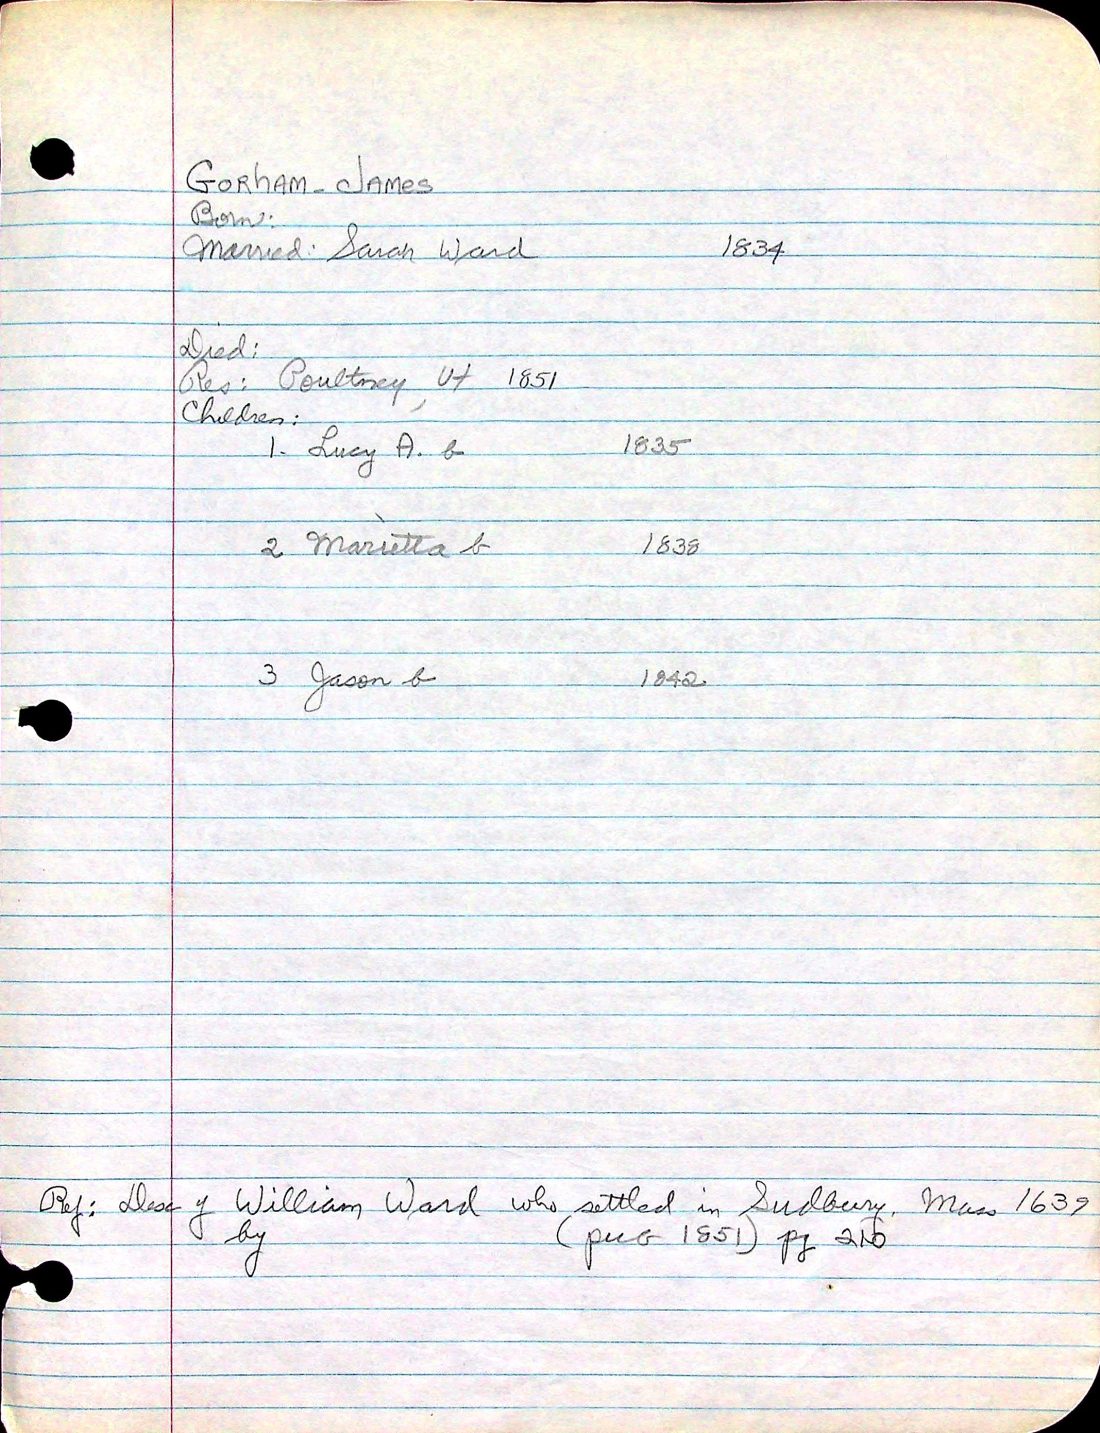 GORHAM - JAMES
Born:
Married: Sarah Ward 1834
Died:
Res: Poultney, Vt 1851
Children:
1. Lucy A. b 1835
2 Marietta b 1838
3 Jason b 1842
Ref: Desc of William Ward who settled in Sudbury, Mass 1639
by (pub 1851) pg